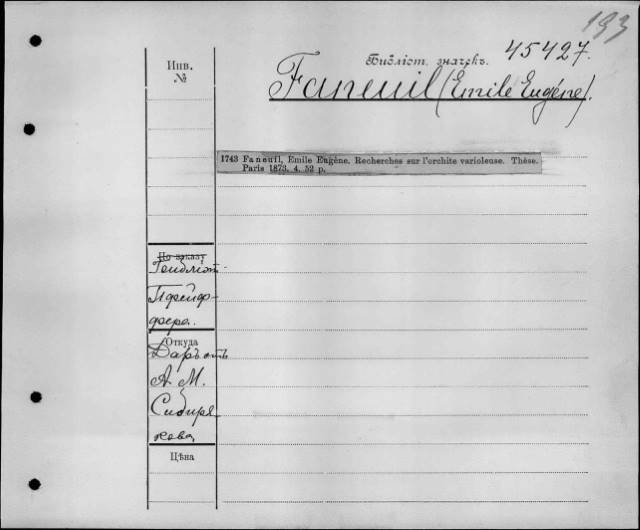 193
Библіот. значекъ. 45427.
Инв.
№
Faneuil (Emile Eugéne).
1743 Faneuil, Emile Eugène. Recherches sur l'orchite varioleuse. Thèse.
Paris 1873. 4. 52 p.
По заказу
Пфейф-
фера.
Откуда
Даръ отъ
А. М.
Сибиря-
кова,
Цѣна